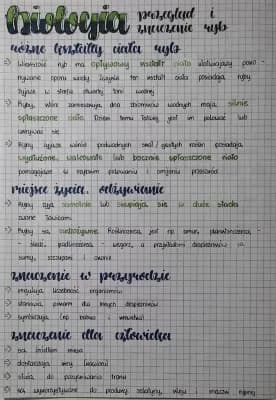 biologia przegląd i
znaczenie ryb
różne kształty ciała ryb
Większość ryb ma opływowy kształt ciała ułatwiający poko-
nywanie oporu wody. Zwykle ten kształt ciała posiadają ryby
żyjące w strefie otwartej toni wodnej
Ryby, które zamieszkują dna zbiorników wodnych mają silnie
spłaszczone ciała. Dzięki temu łatwiej jest im polować lub
ukrywać się
Ryby żyjące wśród podwodnych skał i gęstych roślin posiadają
wydłużone, walcowate lub bocznie spłaszczone ciała
pomagające w szybkim pokonaniu i omijaniu przeszkód
miejsce życia, odżywianie
Ryby żyją samotnie lub skupiają się w duże stada
zwane ławicami
Ryby są cudzożywne. Roślinożercą jest np amur, planktonożercą -
- śledź, padlinożercą - węgorz, a przykładami drapieżników są
sumy, szczupaki i
znaczenie w przyrodzie
regulują liczebność organizmów
stanowią pokarm dla innych drapieżników
symbioza (np
znaczenie dla człowieka
są źródłem mięsa
dostarczają ikry (kawior)
służą do pozyskiwania tranu
są wykorzystywane do produkcji żelatyny, kleju i mączki rybnej